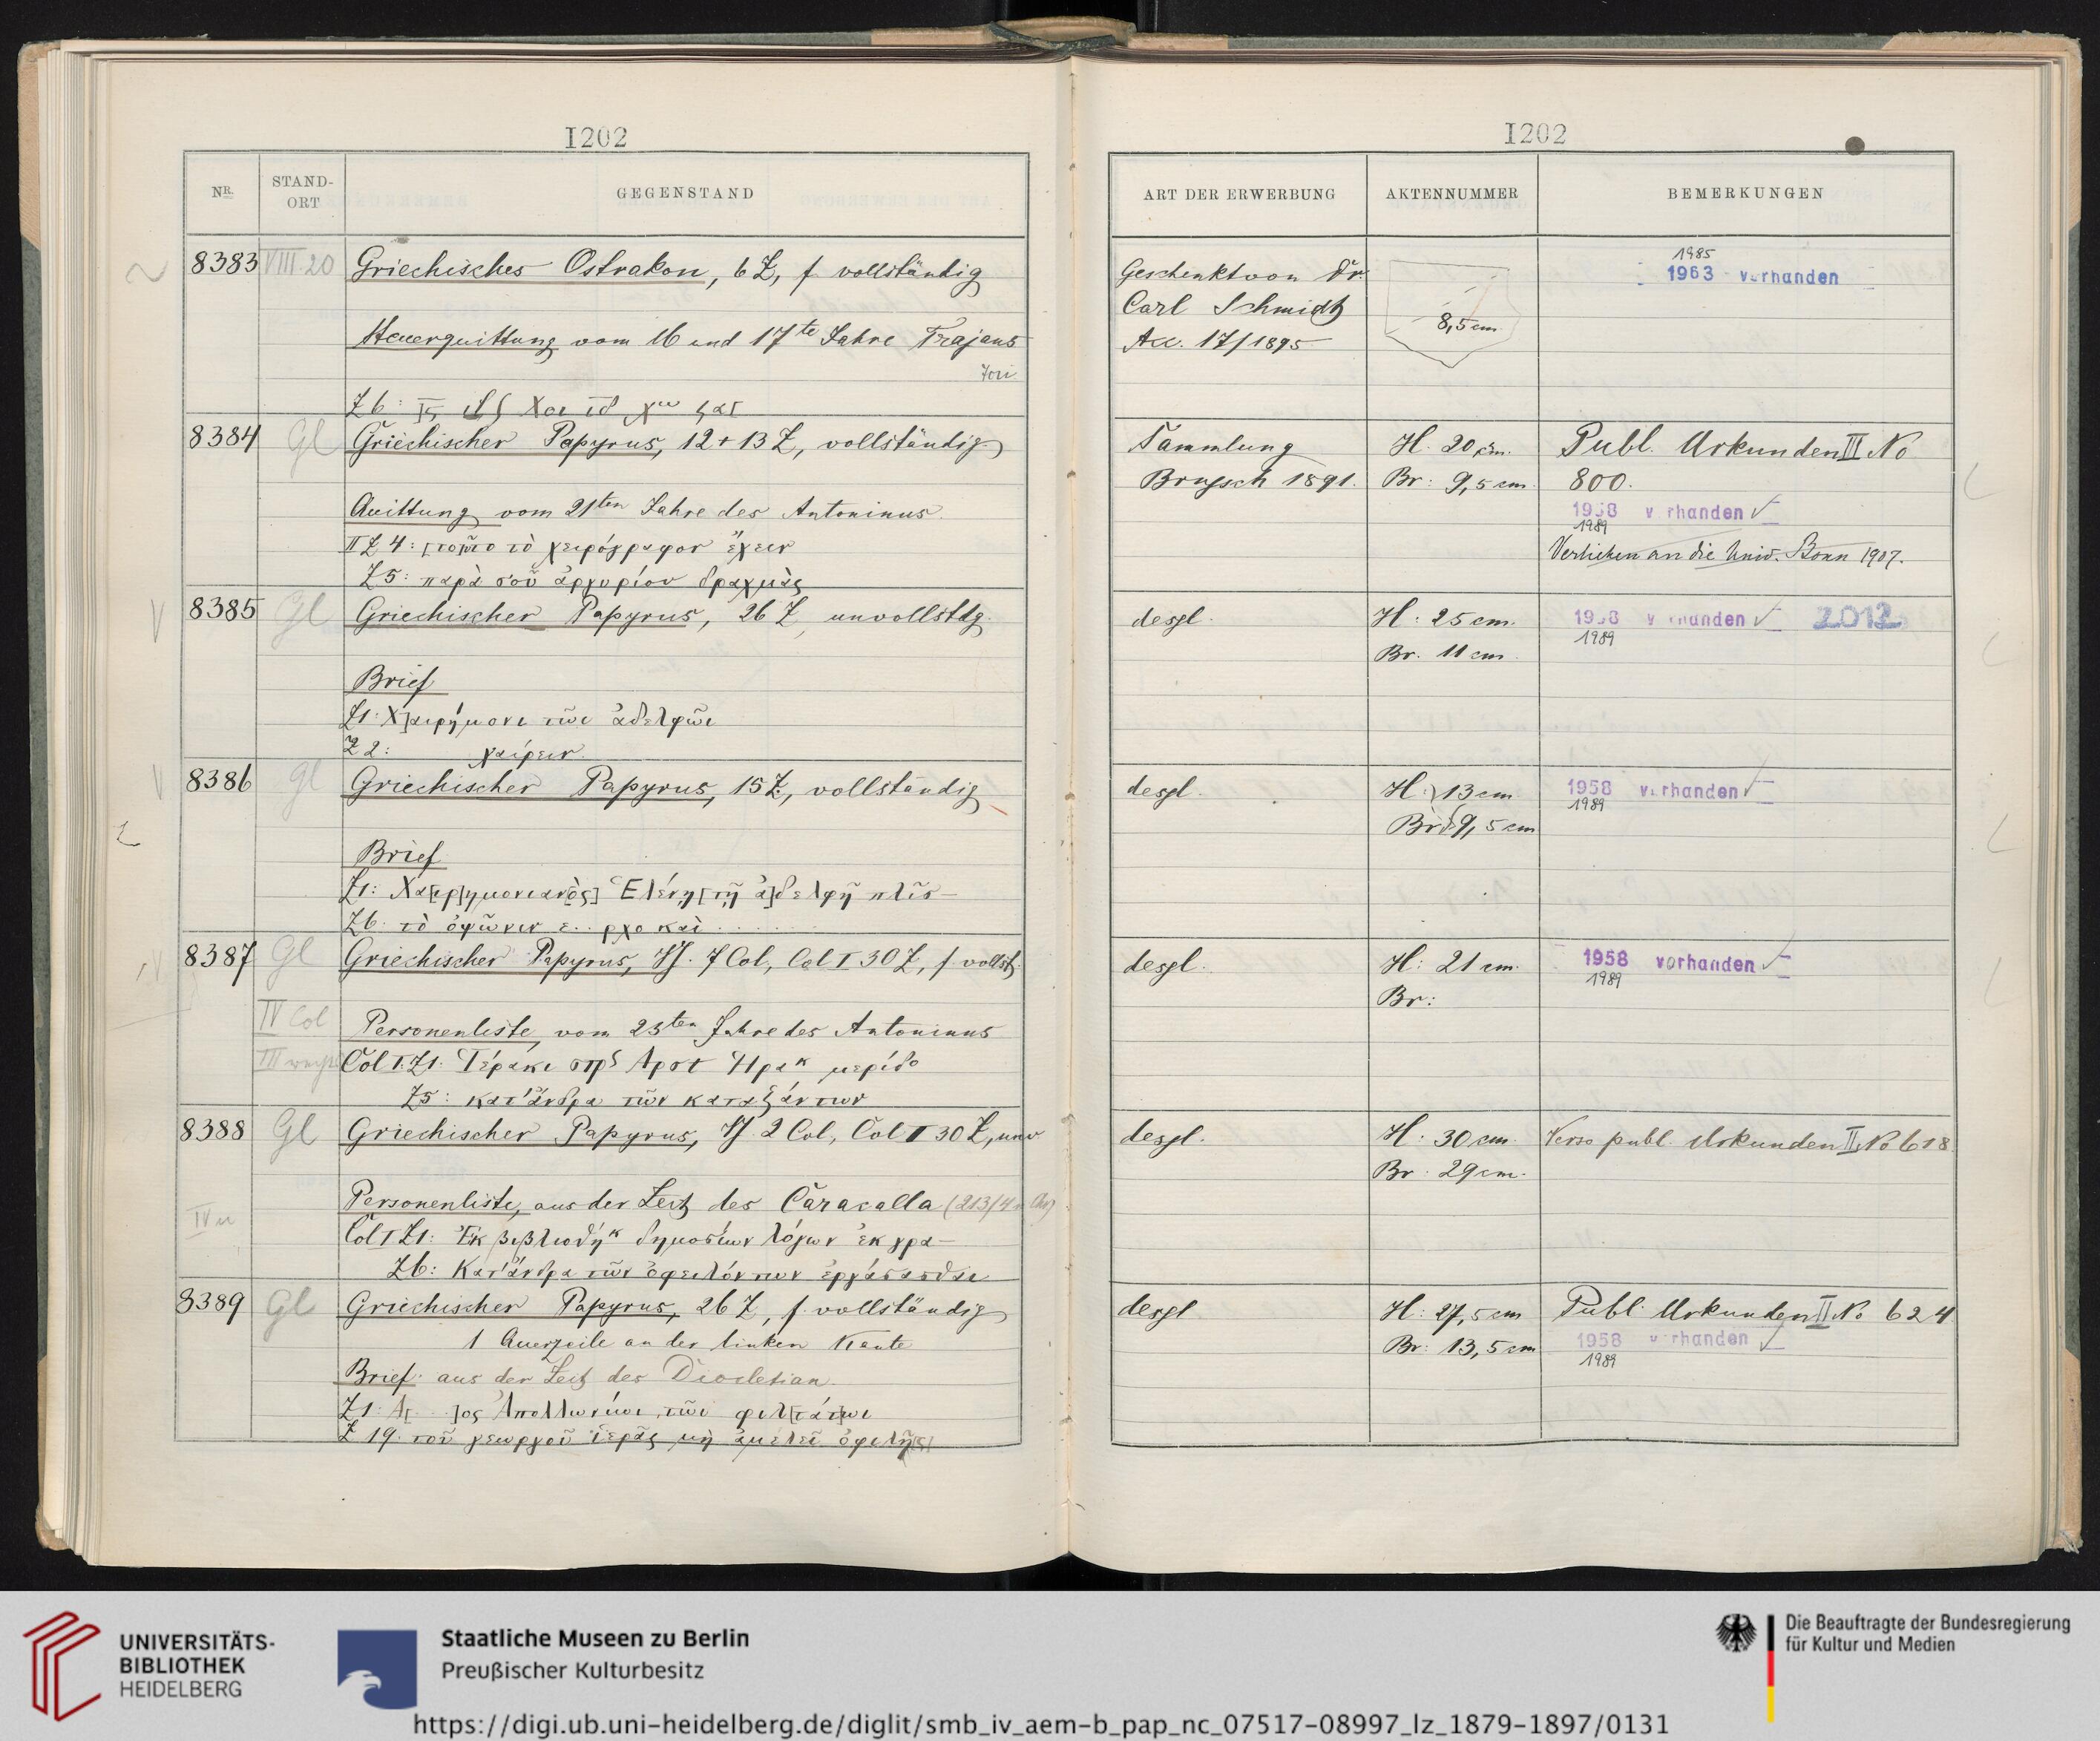 1202
NR.
STAND-
ORT
GEGENSTAND
8383 VIII 20 Griechisches Ostrakon, 6 Z, f. vollständig
Steuerquittung vom 16 und 17te Jahre Trajans
Z 6:
8384 Gl Griechischer Papyrus, 12 + 13 Z, vollständig
Quittung vom 21ten Jahre des Antoninus.
II Z 4: τὸ χειρόγραφον ἔχειν
Z 5: παρὰ σοῦ ἀργυρίου δραχμὰς
8385 Gl Griechischer Papyrus, 26 Z, unvollstdg.
Brief
Z 1: Χ]αιρήμονι τῶι ἀδελφῶι
Z 2: χαίρειν.
8386 Gl Griechischer Papyrus, 15 Z, vollständig
Brief
Z 1: Χα[ιρ]ημονιαν[ὸς] Ἑλένῃ [τῇ ἀ]δελφῇ πλῖσ-
Z 6: τὸ ὀψώνιν ε.. ρχο καὶ ......
8387 Gl Griechischer Papyrus, 7 Col, Col I 30 Z, f. vollst.
IV Col Personenliste, vom 23ten Jahre des Antoninus
Col I. Z 1: Ἱέρακι στρ Αρσι Ηρακ μερίδο
Z 5: κατ' ἄνδρα τῶν καταξάντων
8388 Gl Griechischer Papyrus, 2 Col, Col I 30 Z, unv
Personenliste, aus der Zeit des Caracalla (213/4 n Chr)
Col I Z 1: Ἐκ βιβλιοθήκ δημοσίων λόγων ἐκ γρα-
Z 6: Κατ' ἄνδρα τῶν ὀφειλόντων ἐργάσασθαι
8389 Gl Griechischer Papyrus, 26 Z, f. vollständig
1 Querzeile an der linken Kante
Brief: aus der Zeit des Diocletian.
Z 1: Ἀ[...]ος Ἀπολλωνίωι τῶι φιλ[τά]τωι
Z 19. τοῦ γεωργοῦ ἱερᾶς μὴ ἀμελεῖ ὀφιλῆ[ς]
1202
ART DER ERWERBUNG
AKTENNUMMER
BEMERKUNGEN
Geschenkt von Dr.
Carl Schmidt
Acc. 17/1895
8,5 cm
1985
1963 vorhanden
Sammlung
Brugsch 1891.
H. 20 cm.
Br: 9,5 cm.
Publ. Urkunden III No
800.
1958 vorhanden
1989
Verliehen an die Univ. Bonn 1907.
desgl.
H: 25 cm.
Br. 11 cm.
1958 vorhanden 2012
1989
desgl.
H: 13 cm
Br: 9,5 cm
1958 vorhanden
1989
desgl.
H: 21 cm.
Br:
1958 vorhanden
1989
desgl.
H: 30 cm.
Br: 29 cm.
Verso publ. Urkunden II No 618.
desgl
H: 27,5 cm
Br: 13,5 cm
Publ. Urkunden II No 624
1958 vorhanden
1989
UNIVERSITÄTS-
BIBLIOTHEK
HEIDELBERG
Staatliche Museen zu Berlin
Preußischer Kulturbesitz
Die Beauftragte der Bundesregierung
für Kultur und Medien
https://digi.ub.uni-heidelberg.de/diglit/smb_iv_aem-b_pap_nc_07517-08997_lz_1879-1897/0131